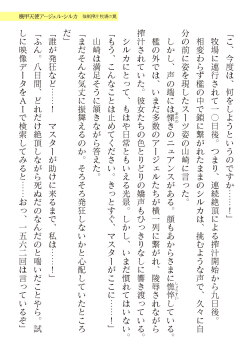 機甲天使アージェル・シルカ
「こ、今度は、何をしようというのですか……！」
牧場に連行されて一〇日後。つまり、連続絶頂による搾汁開始から九日後。
相変わらず檻の中で鎖に繋がれたままのシルカは、挑むような声で、久々に自
分の前に姿を現したスーツ姿の山崎に言った。
しかし、声の端には慄きのニュアンスがある。顔もあからさまに憔悴している。
檻の外では、いまだ多数のアージェルたちが横一列に繋がれ、陵辱されながら
搾汁されていた。彼女たちの色とりどりの嬌声もひっきりなしに響き渡っている。
シルカにとって、発狂してもおかしくない光景。しかし、いまだ慣れていない。
「もう、こんなこと止めてください。きっとマスターが助けに来ます……！」
山崎は満足そうに頷きながら答えた。
「まだそんな気丈に振舞えるのか。そろそろ発狂しないかと心配していたところ
だ」
「誰が発狂など……！　マスターが助けに来るまで、私は……！」
「ふん。八日間、どれだけ絶頂しながら死ぬだのなんだのと喘いだことやら。試
しに映像データをＡＩで検索してみると……おっ、一五六二回は言っているぞ」